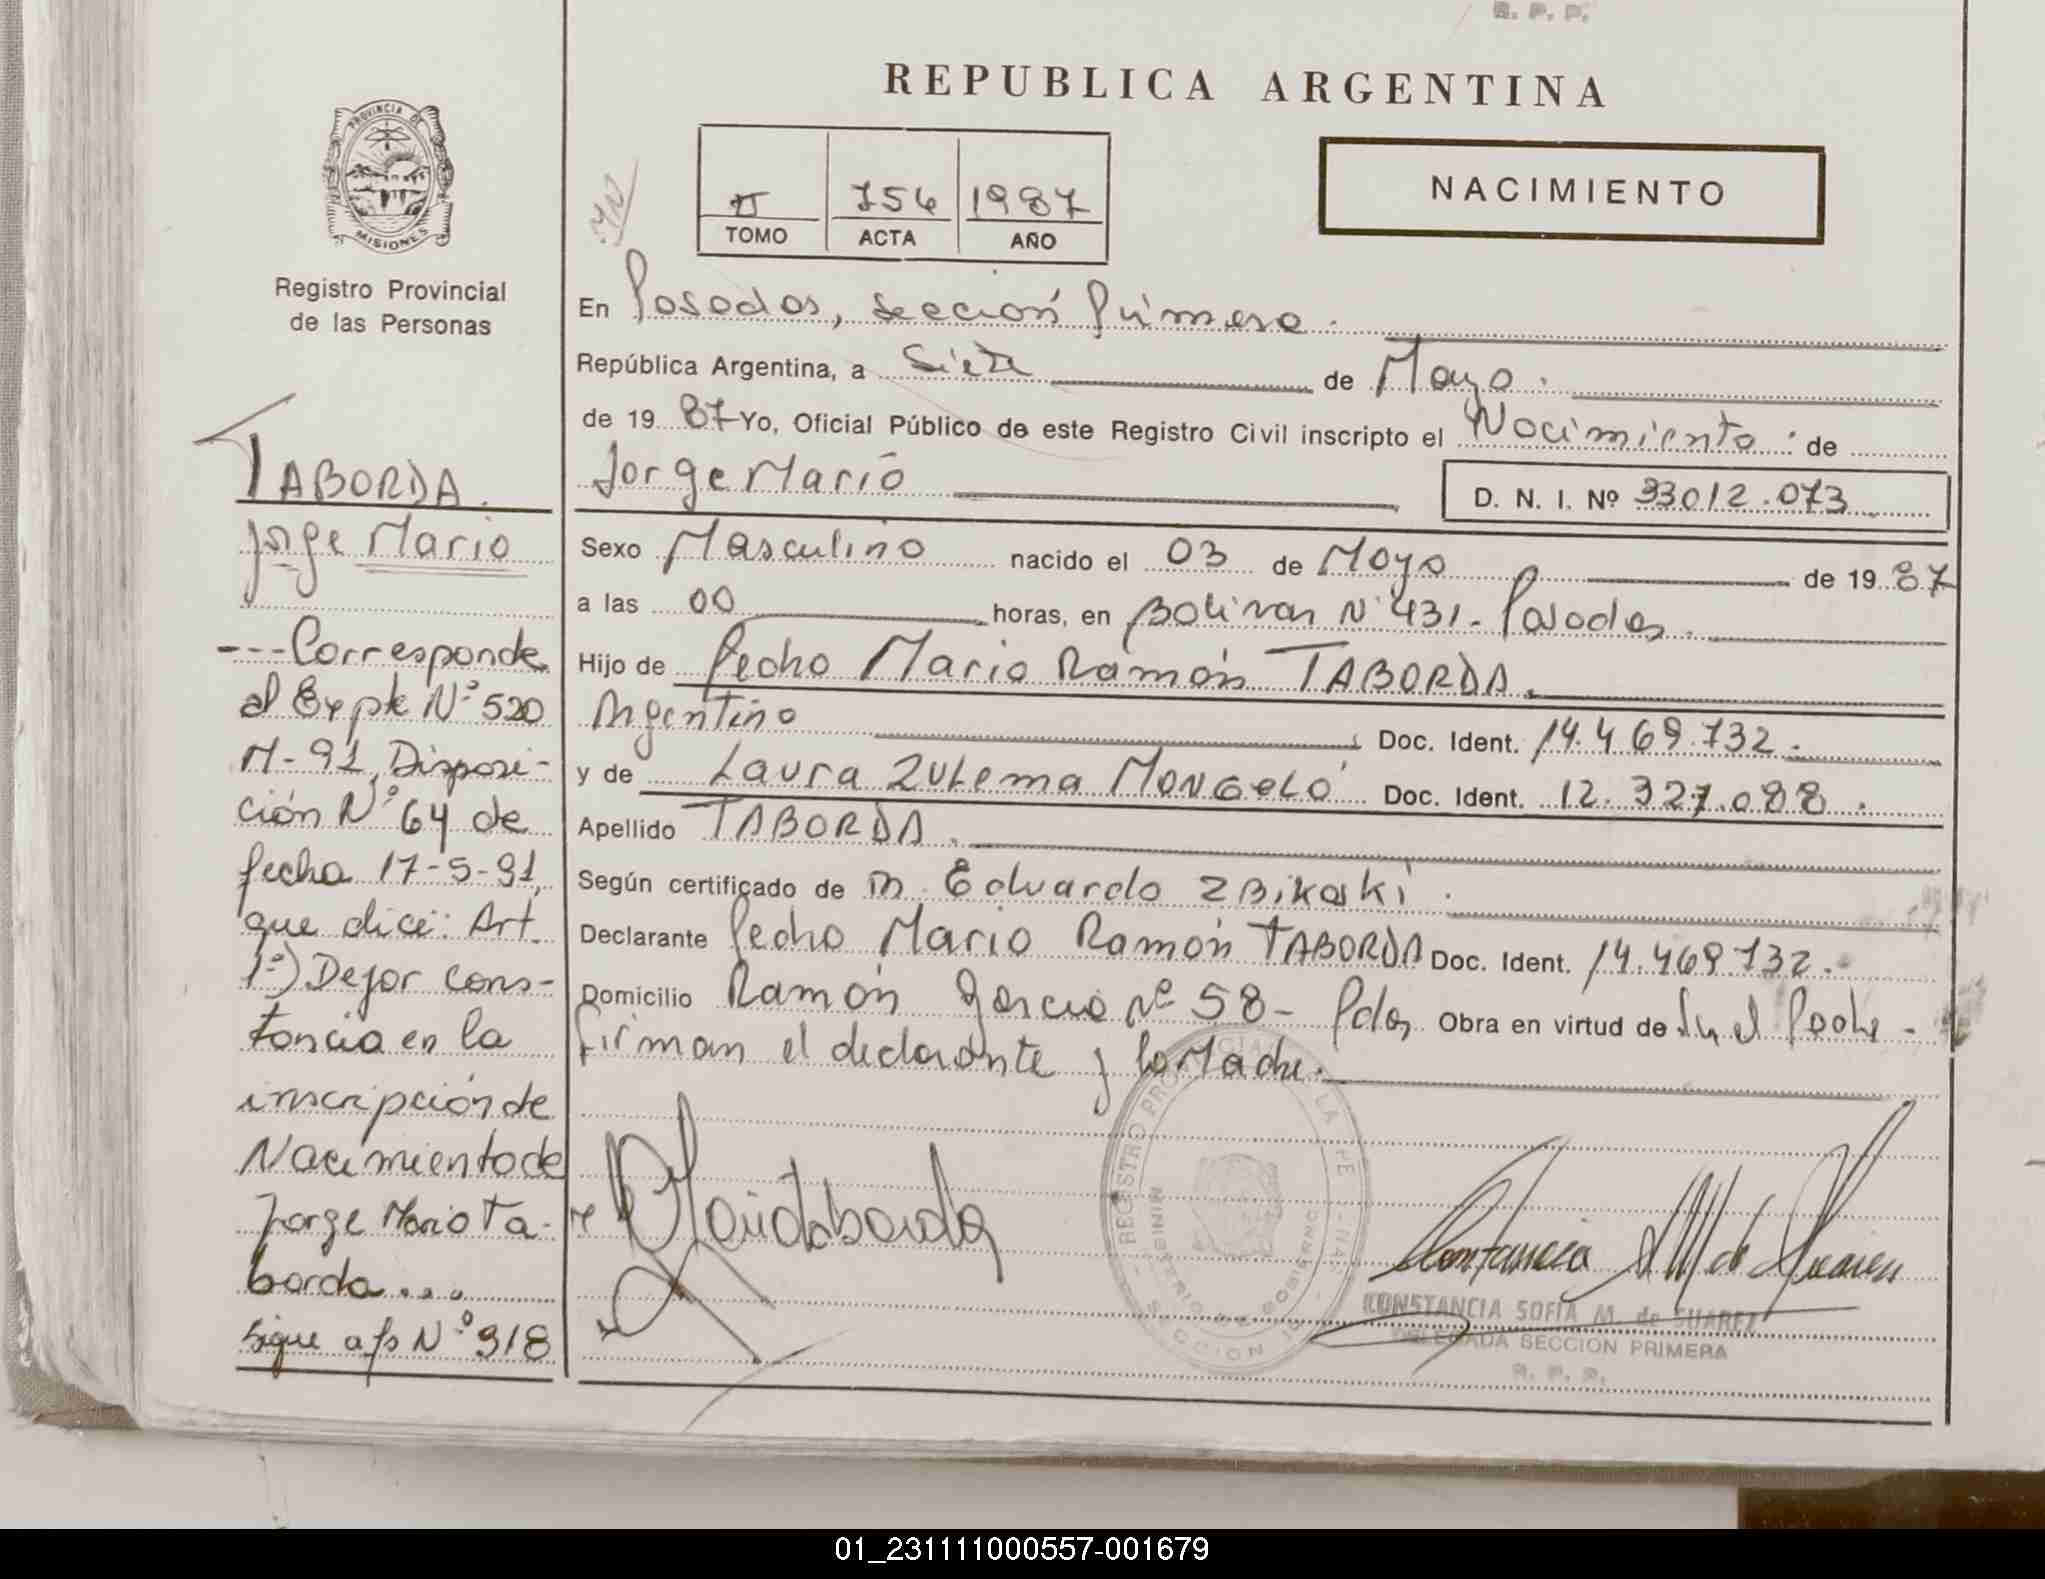 R. P. P.
REPUBLICA ARGENTINA
PROVINCIA DE
MISIONES
Registro Provincial
de las Personas
II 754 1987
TOMO ACTA AÑO
NACIMIENTO
En Posadas, sección Primera.
República Argentina, a Siete de Mayo.
de 1987 Yo, Oficial Público de este Registro Civil inscripto el Nacimiento de
Jorge Mario
D. N. I. Nº 33012.073
Sexo Masculino nacido el 03 de Mayo de 1987
a las 00 horas, en Bolivar Nº 431- Posadas.
Hijo de Pedro Mario Ramón TABORDA.
Argentino Doc. Ident. 14.469.732.
y de Laura Zulema MONGELÓ Doc. Ident. 12.327.088.
Apellido TABORDA.
Según certificado de m. Eduardo Zbikoski.
Declarante Pedro Mario Ramón TABORDA Doc. Ident. 14.469.732.
Domicilio Ramón Garcia Nº 58- Pdas Obra en virtud de Ser el Padre-
firman el declarante y la Madre.
TABORDA.
Jorge Mario
---Corresponde
al Expte Nº 520
M-91, Disposi-
ción Nº 64 de
fecha 17-5-91,
que dice: Art.
1º) Dejar cons-
tancia en la
inscripción de
Nacimiento de
Jorge Mario Ta-
borda...
sigue a fs Nº 318
CONSTANCIA SOFIA M. de SUAREZ
DELEGADA SECCION PRIMERA
R. P. P.
01_231111000557-001679